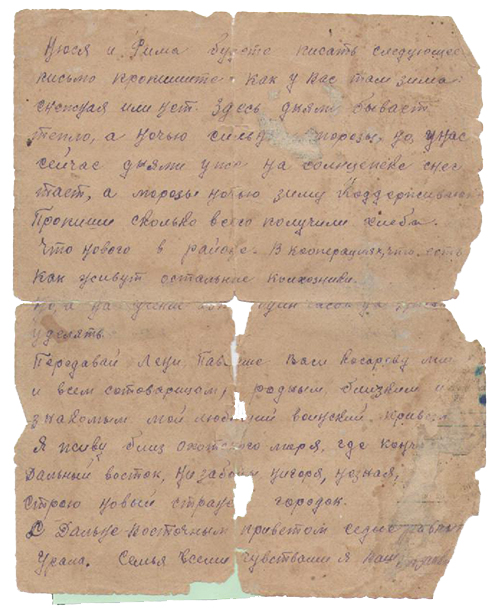 Нюся и Фима будете писать следующее
письмо пропишите как у вас там зима
снежная или нет здесь днями бывает
тепло, а ночью морозы, но, у нас
сейчас днями уже на солнцепеке снег
тает, а морозы ночью зиму
Пропиши сколько всего получили хлеба.
Что нового в районе. В кооперации, что есть
как живут остальные колхозники.
уделять.
Передавай Лени, Павлише Васи Косареву
и всем сотоварищам, родным близким и
знакомым мой любящий воинский привет
Я живу близ охотского моря, где
Дальный восток, не забочи не горя, не зная,
строю новый городок.
С Дальне восточным приветом
Урала. Семья всеми чувствами я ваш